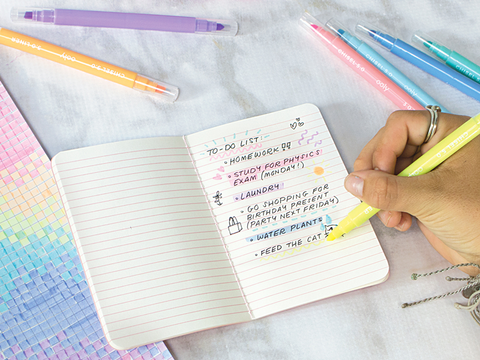 TO-DO LIST:
• HOMEWORK
• STUDY FOR PHYSICS
EXAM (MONDAY!)
• LAUNDRY
• GO SHOPPING FOR
BIRTHDAY PRESENT
(PARTY NEXT FRIDAY)
• WATER PLANTS
• FEED THE CAT